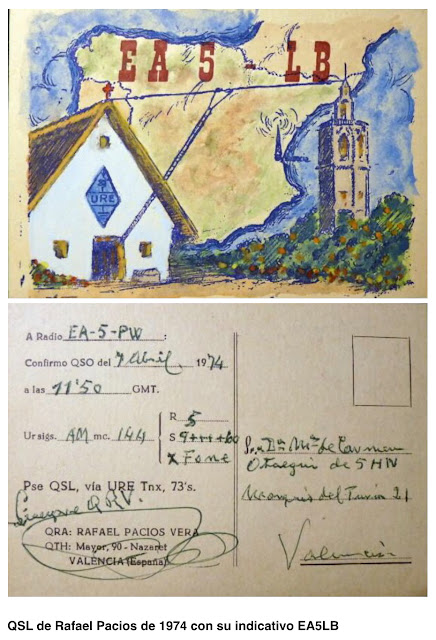 EA 5 - LB
URE
A Radio EA-5-PW
Confirmo QSO del 7 Abril, 1974
a las 11'50 GMT.
Ur sigs. AM mc. 144
R 5
S 9+++60
x Fone
Pse QSL, vía URE Tnx, 73's.
Siempre QRV.
QRA: RAFAEL PACIOS VERA
QTH: Mayor, 90 - Nazaret
VALENCIA (España)
Dña Mª de Carmen
de 5HN
Marqués del Turia 21
Valencia
QSL de Rafael Pacios de 1974 con su indicativo EA5LB